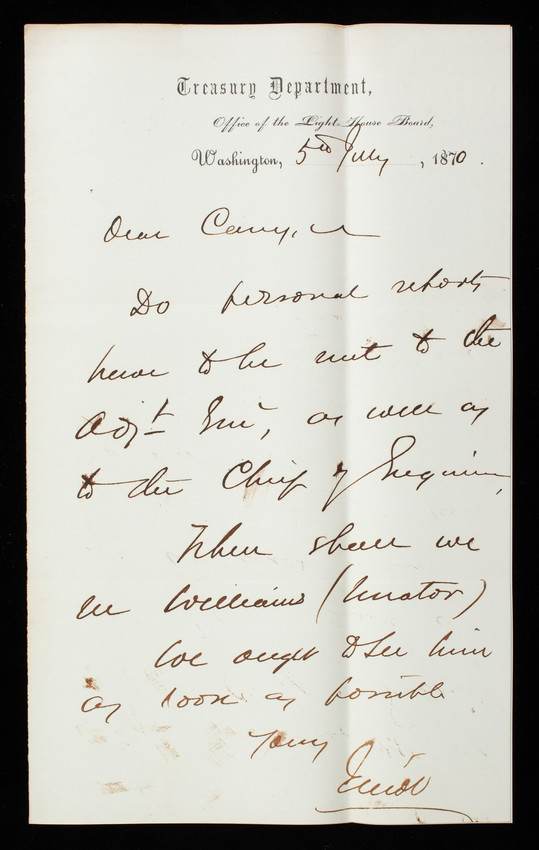 Treasury Department,
Office of the Light-House Board,
Washington, 5th July, 1870.
Dear Casey,
Do personal reports
have to be sent to the
Adjt Genl, as well as
to the Chief of Engineers,
When shall we
see Williams (Senator)
We ought to see him
as soon as possible
Yours
Elliot